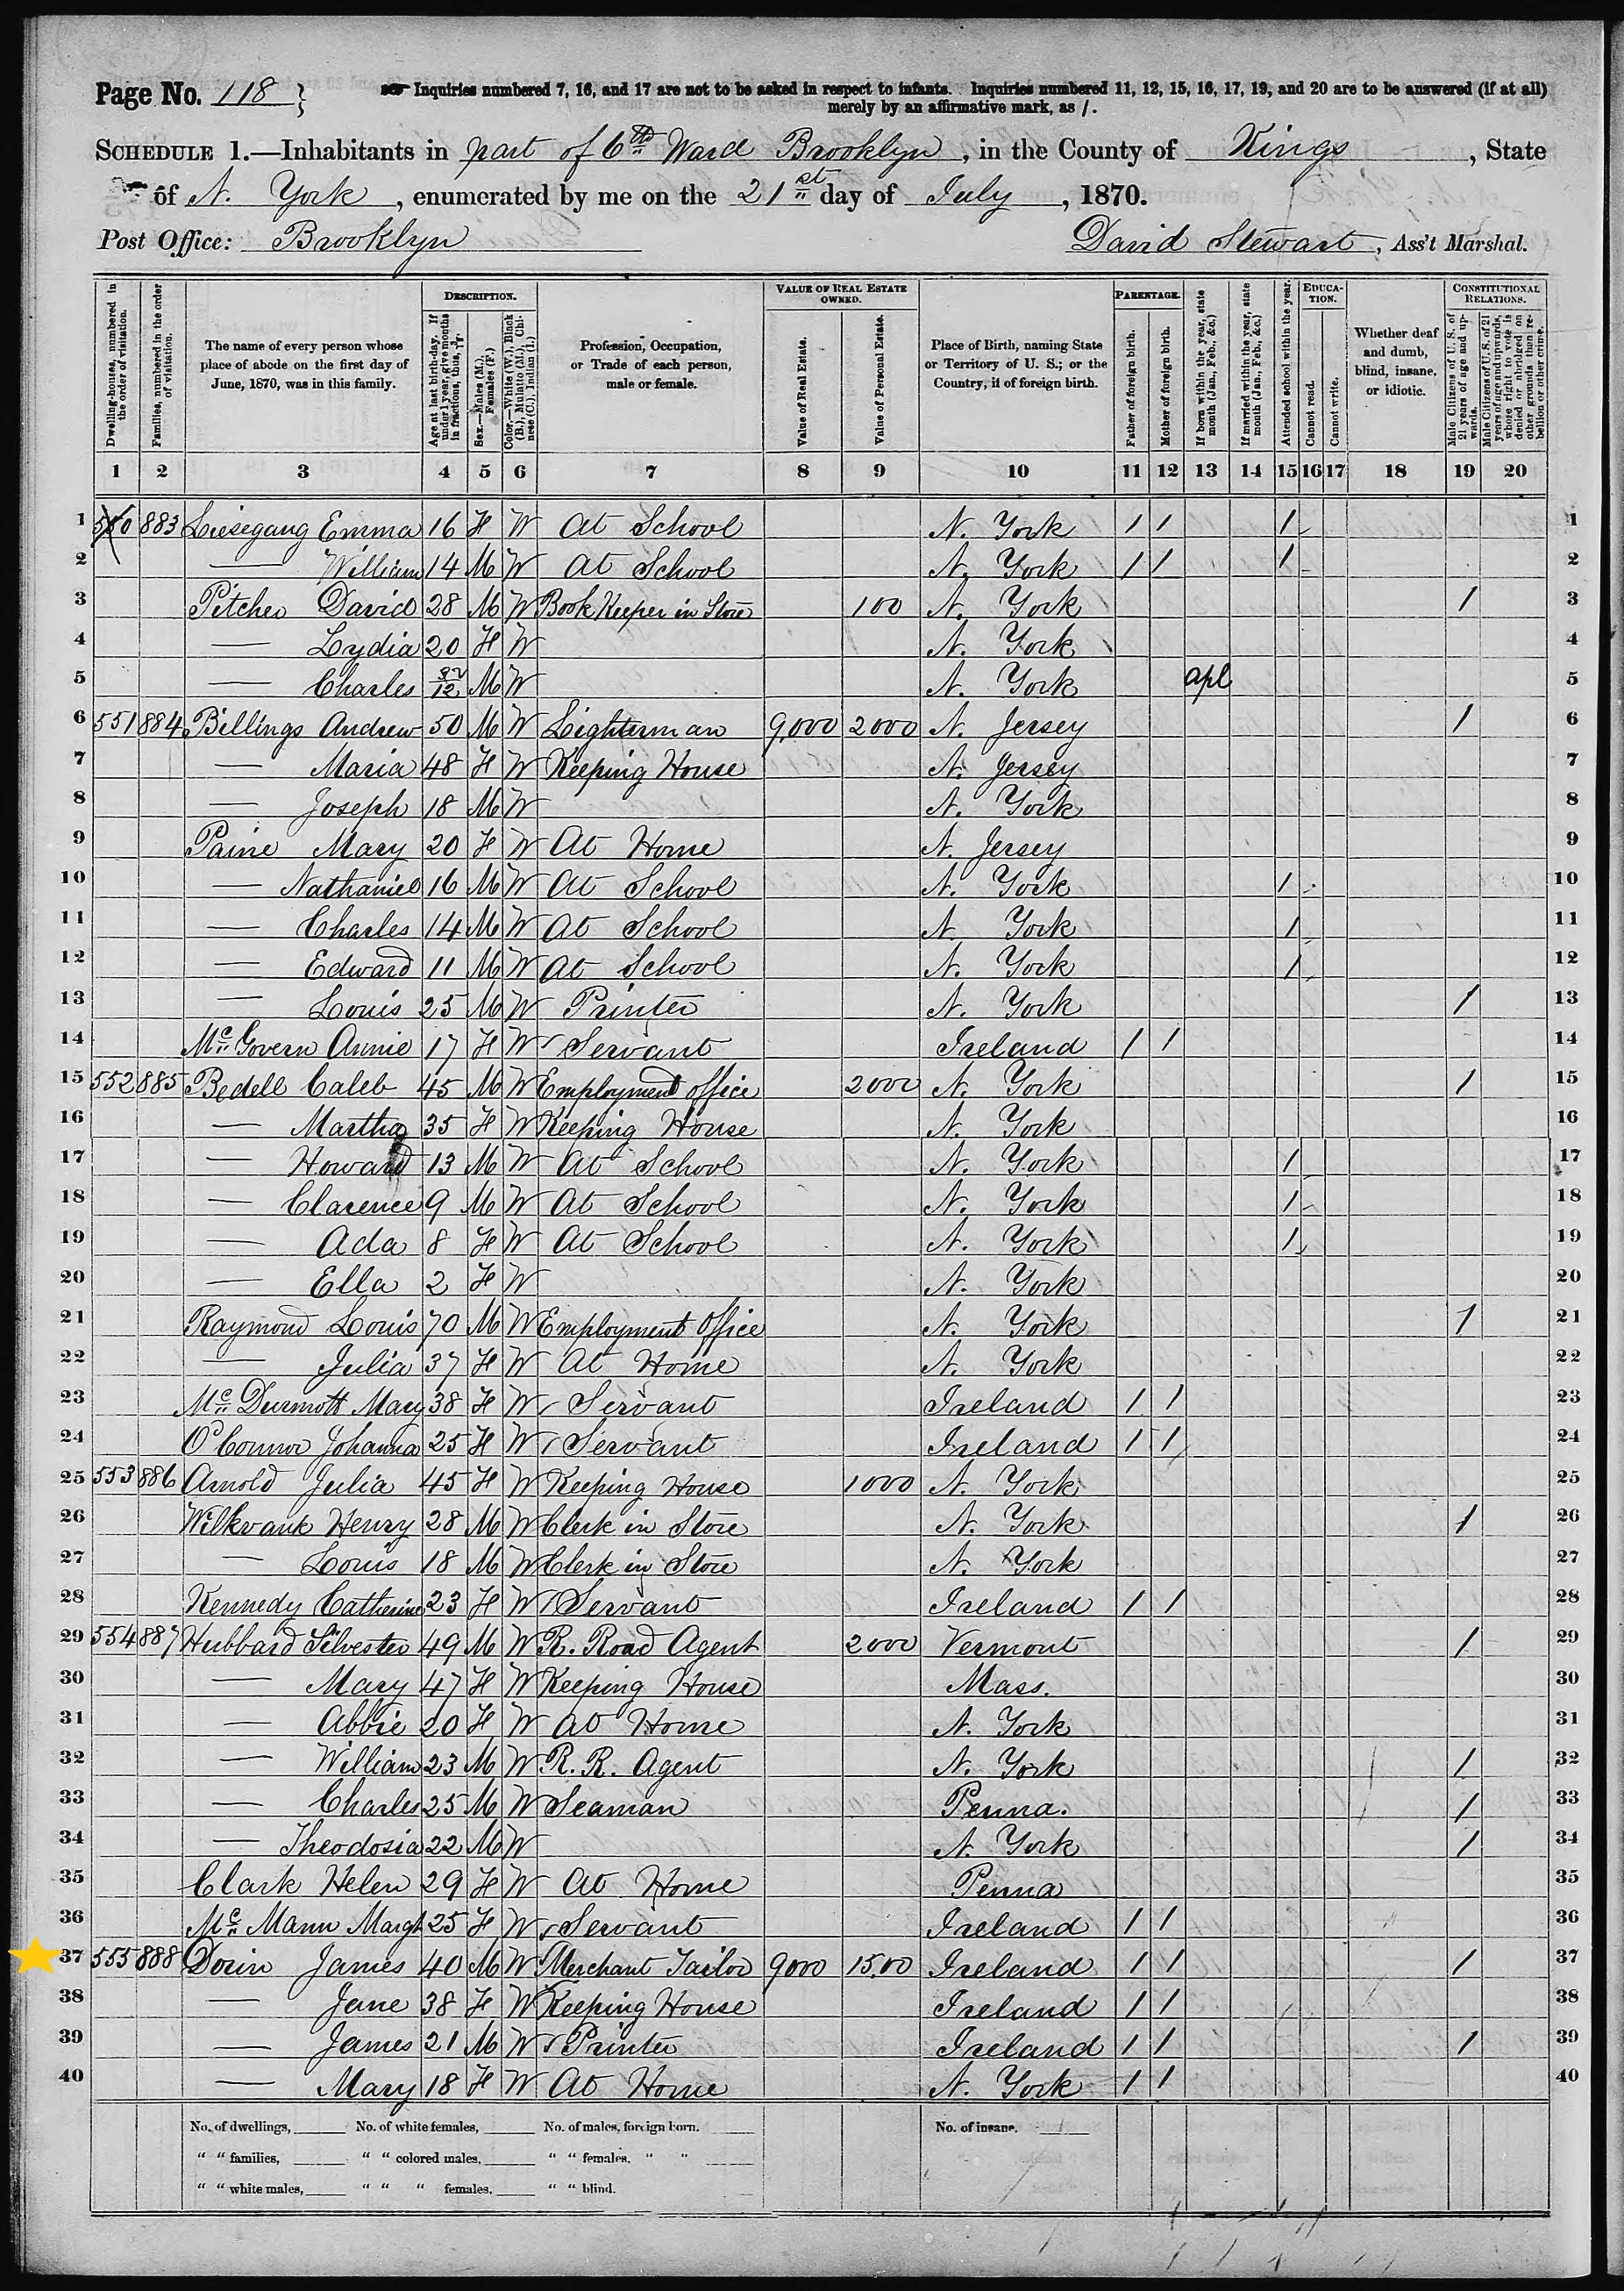 Page No. 118 }
Inquiries numbered 7, 16, and 17 are not to be asked in respect to infants. Inquiries numbered 11, 12, 15, 16, 17, 19, and 20 are to be answered (if at all)
merely by an affirmative mark, as /.
SCHEDULE 1.—Inhabitants in part of 6th Ward Brooklyn, in the County of Kings, State
of N. York, enumerated by me on the 21st day of July, 1870.
Post Office: Brooklyn David Stewart, Ass't Marshal.
DESCRIPTION. VALUE OF REAL ESTATE OWNED. PARENTAGE. EDUCATION. CONSTITUTIONAL RELATIONS.
Dwelling-houses, numbered in the order of visitation.
Families, numbered in the order of visitation.
The name of every person whose place of abode on the first day of June, 1870, was in this family.
Age at last birth-day. If under 1 year, give months in fractions, thus, 3/12.
Sex.—Males (M.), Females (F.)
Color.—White (W.), Black (B.), Mulatto (M.), Chinese (C.), Indian (I.)
Profession, Occupation, or Trade of each person, male or female.
Value of Real Estate.
Value of Personal Estate.
Place of Birth, naming State or Territory of U. S.; or the Country, if of foreign birth.
Father of foreign birth.
Mother of foreign birth.
If born within the year, state month (Jan., Feb., &c.)
If married within the year, state month (Jan., Feb., &c.)
Attended school within the year.
Cannot read.
Cannot write.
Whether deaf and dumb, blind, insane, or idiotic.
Male Citizens of U. S. of 21 years of age and upwards.
Male Citizens of U. S. of 21 years of age and upwards, whose right to vote is denied or abridged on other grounds than rebellion or other crime.
1 2 3 4 5 6 7 8 9 10 11 12 13 14 15 16 17 18 19 20
1 883 Liesegang Emma 16 F W At School N. York / / / 1
2 — William 14 M W At School N. York / / / 2
3 Pitcher David 28 M W Book Keeper in Store 100 N. York / 3
4 — Lydia 20 F W N. York 4
5 — Charles M W N. York apl 5
6 551 884 Billings Andrew 50 M W Lighterman 9,000 2000 N. Jersey / 6
7 — Maria 48 F W Keeping House N. Jersey 7
8 — Joseph 18 M W N. York 8
9 Paine Mary 20 F W At Home N. Jersey 9
10 — Nathaniel 16 M W At School N. York / 10
11 — Charles 14 M W At School N. York / 11
12 — Edward 11 M W At School N. York / 12
13 — Louis 25 M W Printer N. York / 13
14 Mc Govern Annie 17 F W Servant Ireland / / 14
15 552 885 Bedell Caleb 45 M W Employment office 2000 N. York / 15
16 — Martha 35 F W Keeping House N. York 16
17 — Howard 13 M W At School N. York / 17
18 — Clarence 9 M W At School N. York / 18
19 — Ada 8 F W At School N. York / 19
20 — Ella 2 F W N. York 20
21 Raymond Louis 70 M W Employment Office N. York / 21
22 — Julia 37 F W At Home N. York 22
23 Mc Durmott Mary 38 F W Servant Ireland / / 23
24 O'Connor Johanna 25 F W Servant Ireland / / 24
25 553 886 Arnold Julia 45 F W Keeping House 1000 N. York 25
26 Henry 28 M W Clerk in Store N. York / 26
27 — Louis 18 M W Clerk in Store N. York 27
28 Kennedy Catherine 23 F W Servant Ireland / / 28
29 554 887 Hubbard Silvester 49 M W R. Road Agent 2000 Vermont / 29
30 — Mary 47 F W Keeping House Mass. 30
31 — Abbie 20 F W At Home N. York 31
32 — William 23 M W R. R. Agent N. York / 32
33 — Charles 25 M W Seaman Penna. / 33
34 — Theodosia 22 M W N. York / 34
35 Clark Helen 29 F W At Home Penna 35
36 Mc Mann Margt 25 F W Servant Ireland / / 36
37 555 888 Dorin James 40 M W Merchant Tailor 9000 15,00 Ireland / / / 37
38 — Jane 38 F W Keeping House Ireland / / 38
39 — James 21 M W Printer Ireland / / / 39
40 — Mary 18 F W At Home N. York / / 40
No. of dwellings, No. of white females, No. of males, foreign born. No. of insane,
" " families, " " colored males, " " females, " "
" " white males, " " " females, " " blind.